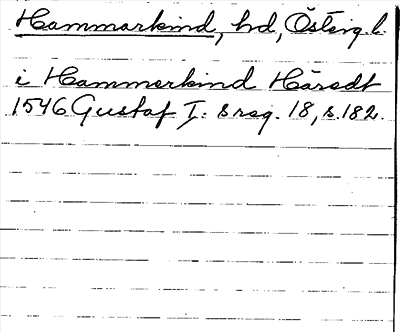 Hammarkind, hd, Österg. l.
i Hammerkind Häradt
1546 Gustaf I: s reg. 18, s. 182.